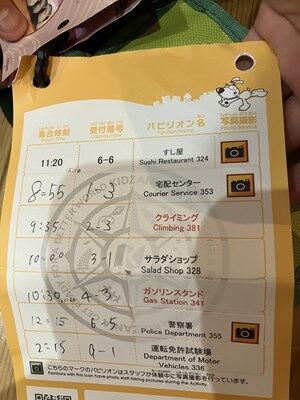 しゅうごうじこく うけつけばんごう めい しゃしんさつえい
集合時刻 受付番号 パビリオン名 写真撮影
Return Time Card Number Pavilion Name Photo Service
11:20 6-6 すし屋
Sushi Restaurant 324
8:55 -3 宅配センター
Courier Service 353
9:35 2-3 クライミング
Climbing 381
10:00 3-1 サラダショップ
Salad Shop 328
10:30 4-3 ガソリンスタンド
Gas Station 341
12:15 6-5 警察署
Police Department 355
2:15 9-1 運転免許試験場
Department of Motor
Vehicles 336
こちらのマークのパビリオンはスタッフが体験中に写真撮影を行っています。
Pavilions with this icon have photo staff taking pictures during the Activity